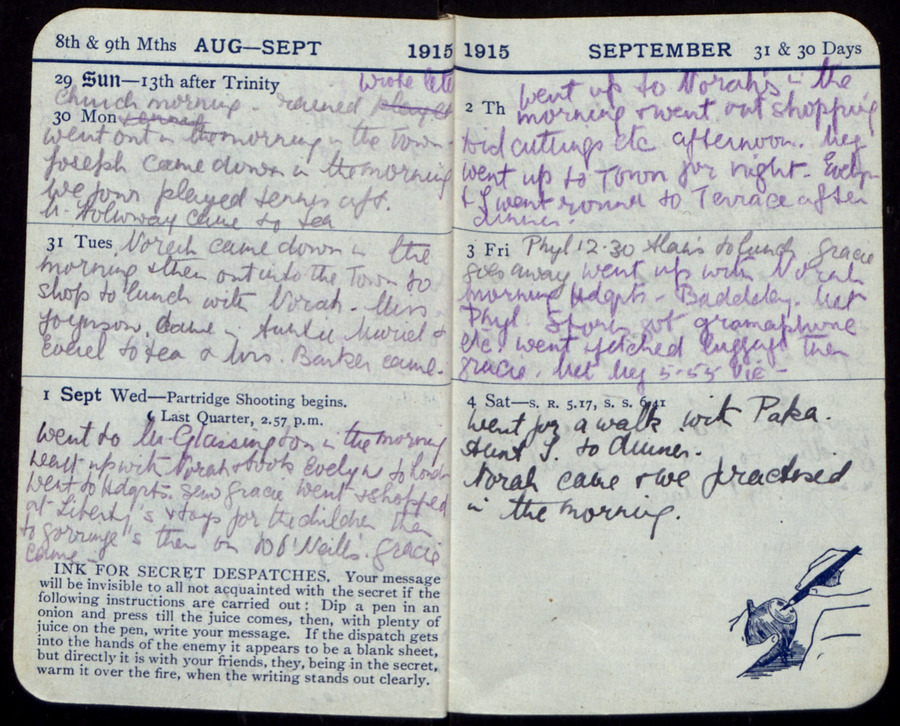 8th & 9th Mths AUG—SEPT 1915
29 Sun—13th after Trinity wrote
Church morning - rained
30 Mon
went out in the morning in the Town -
Joseph came down in the morning
we four played tennis aft.
Holloway came to tea
31 Tues Norah came down in the
morning & then out into the Town to
shop to lunch with Norah - Miss
Joynson came - Auntie Muriel &
to tea & Mrs. Barker came.
1 Sept Wed—Partridge Shooting begins.
☾ Last Quarter, 2.57 p.m.
went to Glassington in the morning
went up with Norah & took Evelyn to
went to Hdqrts. saw Gracie went & shopped
at Liberty's & toys for the children then
to Gorringe's then on to O'Neills. Gracie
came -
INK FOR SECRET DESPATCHES. Your message
will be invisible to all not acquainted with the secret if the
following instructions are carried out: Dip a pen in an
onion and press till the juice comes, then, with plenty of
juice on the pen, write your message. If the dispatch gets
into the hands of the enemy it appears to be a blank sheet,
but directly it is with your friends, they, being in the secret,
warm it over the fire, when the writing stands out clearly.
1915 SEPTEMBER 31 & 30 Days
2 Th went up to Norah's in the
morning & went out shopping
cuttings etc afternoon. Meg
went up to Town for night. Evelyn
& I went round to Terrace after
dinner.
3 Fri Phyl 12.30 to lunch Gracie
goes away went up with Norah
morning Hdqrts - Baddeley. Met
Phyl. Sports got gramaphone
etc. went & fetched luggage then
Gracie. Met Meg 5-55 Vic -
4 Sat—S. R. 5.17, S. S. 6.41
Went for a walk with Paka.
Aunt J. to dinner.
Norah came & we practised
in the morning.